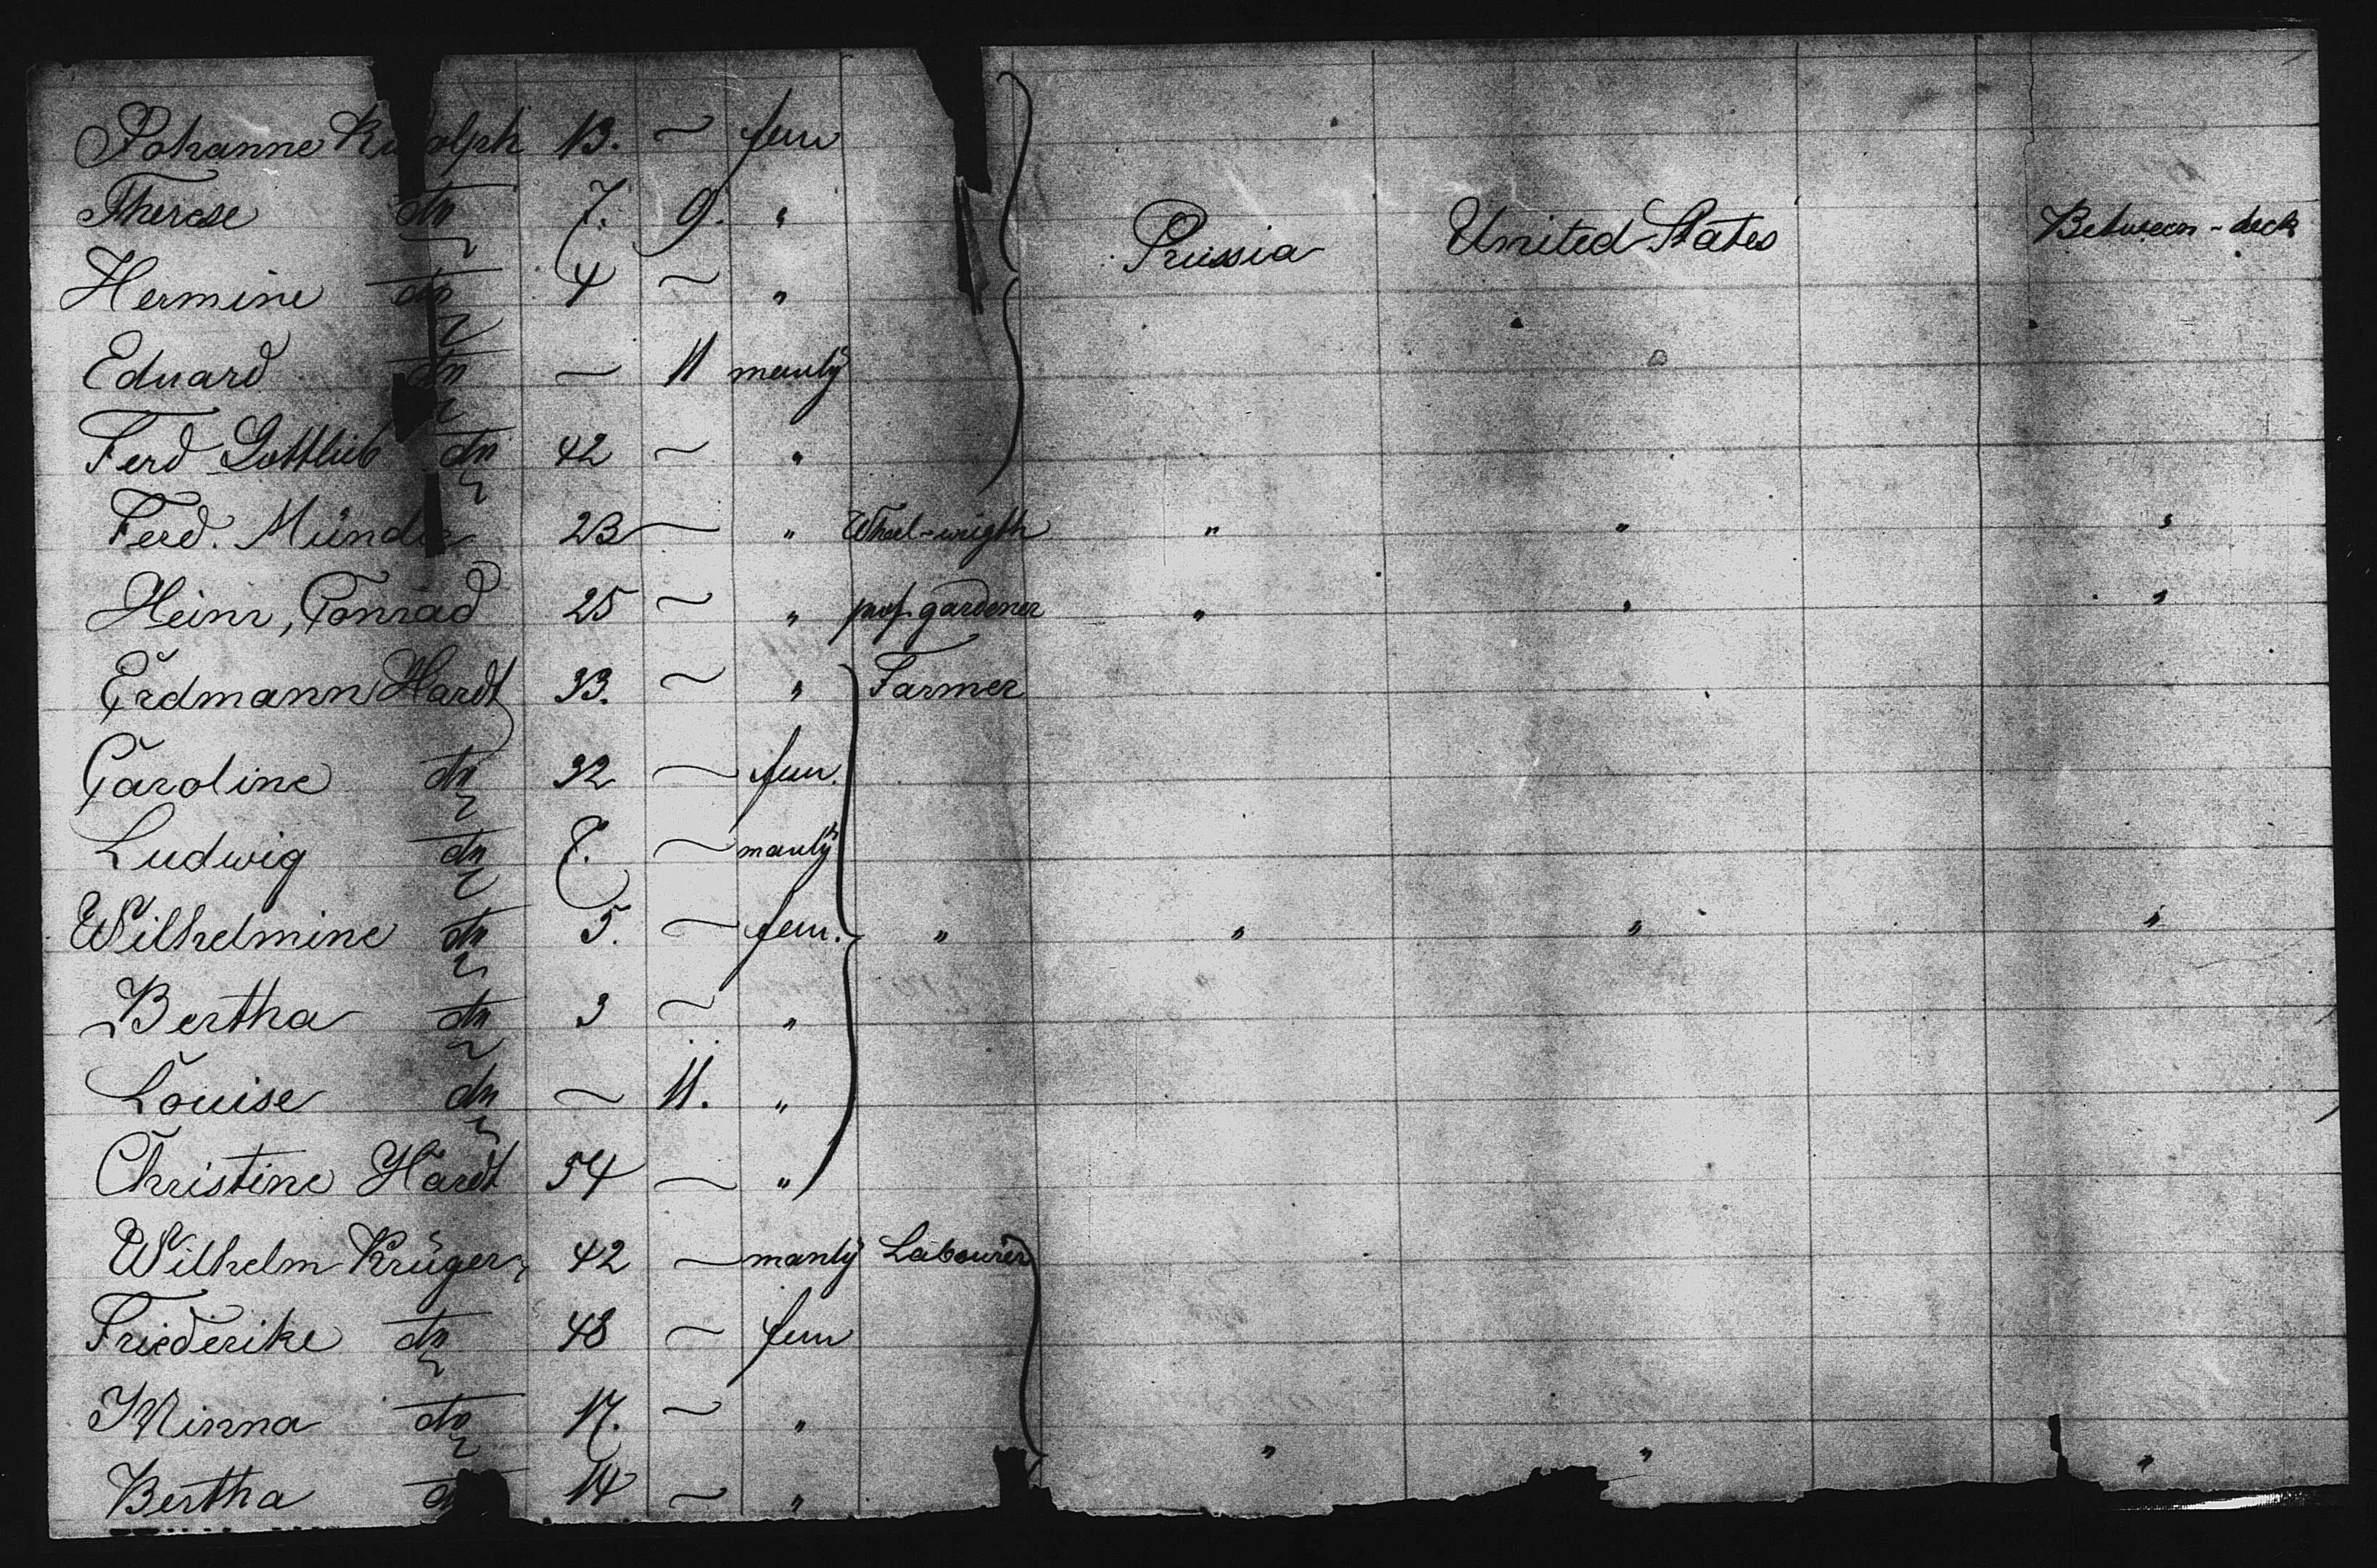 Johanne Rudolph 13. — fem
Therese do 7. 9. "
Prussia United States Between-deck
Hermine do 4 — "
Eduard do — 11 manly
Ferd Gottlieb do 42 — "
Ferd. Münder 23 — " Wheel-wrigth " " "
Heinr, Conrad 25 — " prof. gardener " " "
Erdmann Hardt 33. — " Farmer
Caroline do 32 — fem.
Ludwig do 7. — manly
Wilhelmine do 5. — fem. " " " "
Bertha do 3 — "
Louise do — 11. "
Christine Hardt 54 — "
Wilhelm Krüger, 42 — manly Labourer
Friederike do 48 — fem
Minna do 17. — "
" " "
Bertha do 14 — "